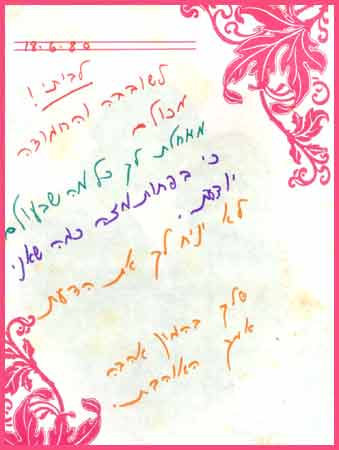 18-6-80
לביתי!
לשובבה והחמודה
מכולם
מאחלת לך כל מה שבעולם
כי בפחות מזה כמה שאני
יודעת.
לא יניח לך את הדעת.
שלך בהמון אהבה
אמך האוהבת.